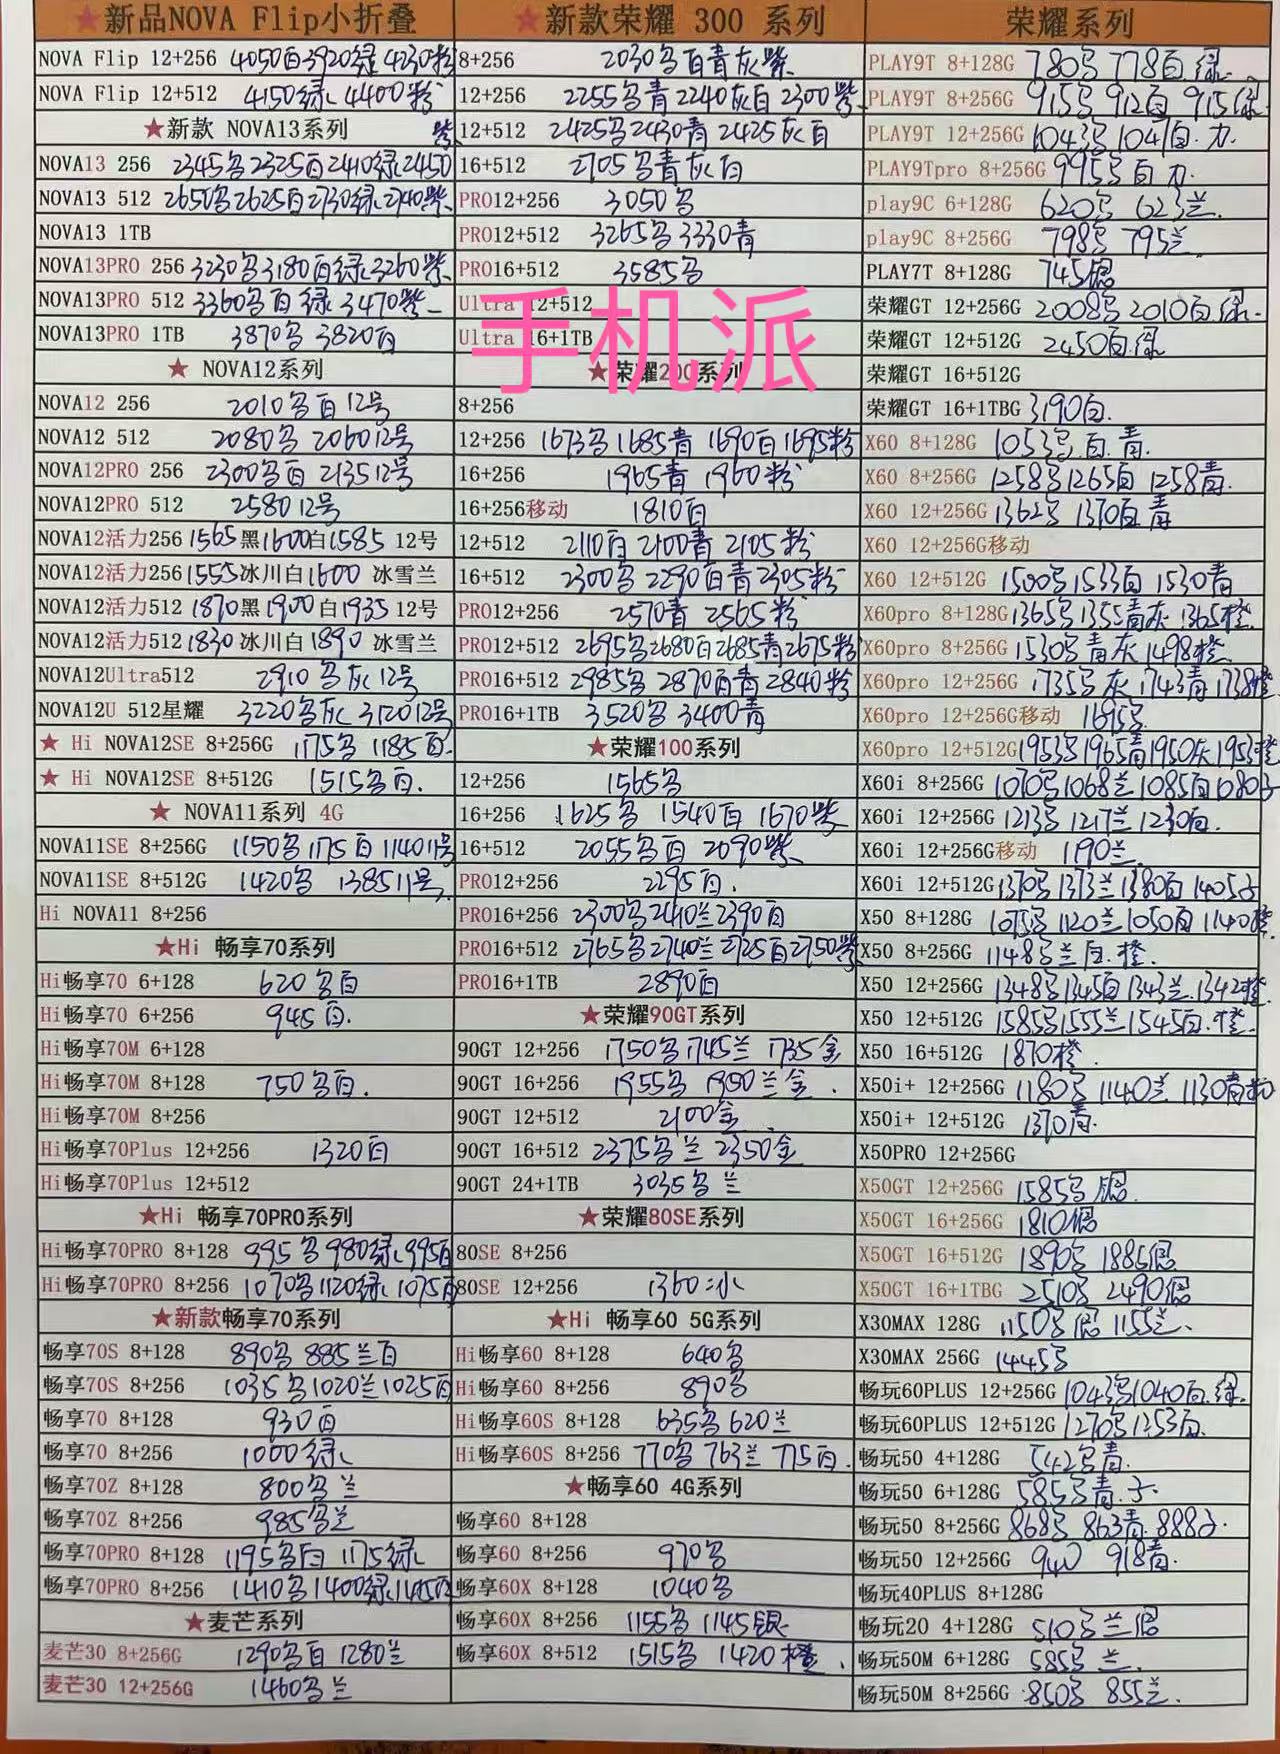 ★新品NOVA Flip小折叠
NOVA Flip 12+256 4050白3920绿4230粉
NOVA Flip 12+512 4150绿 4400粉
★新款 NOVA13系列
NOVA13 256 2345多2325白2410绿2450紫
NOVA13 512 2650多2625白2730绿2740紫
NOVA13 1TB
NOVA13PRO 256 3230多3180白绿3260紫
NOVA13PRO 512 3360多白绿3470紫
NOVA13PRO 1TB 3870多 3820白
★ NOVA12系列
NOVA12 256 2010多白12号
NOVA12 512 2080多 2060 12号
NOVA12PRO 256 2300多白 2135 12号
NOVA12PRO 512 2580 12号
NOVA12活力256 1565黑1600白1585 12号
NOVA12活力256 1555冰川白1600 冰雪兰
NOVA12活力512 1870黑1900白1935 12号
NOVA12活力512 1830冰川白1890 冰雪兰
NOVA12Ultra512 2910多灰12号
NOVA12U 512星耀 3220多灰 3120 12号
★ Hi NOVA12SE 8+256G 1175多 1185白.
★ Hi NOVA12SE 8+512G 1515多白.
★ NOVA11系列 4G
NOVA11SE 8+256G 1150多 1175白 1140 11号
NOVA11SE 8+512G 1420多 1385 11号
Hi NOVA11 8+256
★Hi 畅享70系列
Hi畅享70 6+128 620多白
Hi畅享70 6+256 945白.
Hi畅享70M 6+128
Hi畅享70M 8+128 750多白.
Hi畅享70M 8+256
Hi畅享70Plus 12+256 1320白
Hi畅享70Plus 12+512
★Hi 畅享70PRO系列
Hi畅享70PRO 8+128 995多980绿995白
Hi畅享70PRO 8+256 1070多1120绿1075白
★新款畅享70系列
畅享70S 8+128 890多 885兰白
畅享70S 8+256 1035多1020兰1025白
畅享70 8+128 930白
畅享70 8+256 1000绿
畅享70Z 8+128 800多兰
畅享70Z 8+256 985多兰
畅享70PRO 8+128 1195多白 1175绿
畅享70PRO 8+256 1410多1400绿1415白
★麦芒系列
麦芒30 8+256G 1290多白 1280兰
麦芒30 12+256G 1460多兰
★新款荣耀 300 系列
8+256 2030多白青灰紫
12+256 2255多青 2240灰白 2300紫
12+512 2425多2430青 2425灰白
16+512 2705多青灰白
PRO12+256 3050多
PRO12+512 3265多3330青
PRO16+512 3585多
Ultra 12+512
Ultra 16+1TB
手机派
★荣耀200系列
8+256
12+256 1673多1685青 1690白1695粉
16+256 1965青 1960粉
16+256移动 1810白
12+512 2110白 2100青 2105粉
16+512 2300多2290白青2305粉
PRO12+256 2570青 2565粉
PRO12+512 2695多2680白2685青2675粉
PRO16+512 2985多2870白青2840粉
PRO16+1TB 3520多 3400青
★荣耀100系列
12+256 1565多
16+256 1625多 1540白 1670紫
16+512 2055多白 2090紫
PRO12+256 2295白.
PRO16+256 2300多2410兰2390白
PRO16+512 2765多2740兰2725白2750紫
PRO16+1TB 2890白
★荣耀90GT系列
90GT 12+256 1750多1745兰 1735金
90GT 16+256 1955多 1950兰金.
90GT 12+512 2100金
90GT 16+512 2375多兰 2350金
90GT 24+1TB 3035多兰
★荣耀80SE系列
80SE 8+256
80SE 12+256 1360冰
★Hi 畅享60 5G系列
Hi畅享60 8+128 640多
Hi畅享60 8+256 890多
Hi畅享60S 8+128 635多620兰
Hi畅享60S 8+256 770多 763兰 775白.
★畅享60 4G系列
畅享60 8+128
畅享60 8+256 970多
畅享60X 8+128 1040多
畅享60X 8+256 1155多 1145银
畅享60X 8+512 1515多 1420橙.
荣耀系列
PLAY9T 8+128G 780多 778白.绿.
PLAY9T 8+256G 915多 912白 915绿
PLAY9T 12+256G 1043多 1041白.
PLAY9Tpro 8+256G 995多白
play9C 6+128G 620多 623兰.
play9C 8+256G 798多 795兰
PLAY7T 8+128G 745银
荣耀GT 12+256G 2008多 2010白.绿.
荣耀GT 12+512G 2450白.绿
荣耀GT 16+512G
荣耀GT 16+1TBG 3190白.
X60 8+128G 1053多.白.青.
X60 8+256G 1258多1265白 1258青.
X60 12+256G 1362多 1370白青
X60 12+256G移动
X60 12+512G 1500多1533白 1530青
X60pro 8+128G 1365多1355青灰1365橙.
X60pro 8+256G 1530多青灰1498橙.
X60pro 12+256G 1735多灰1743青1738橙
X60pro 12+256G移动 1695多
X60pro 12+512G 1953多1965青1950灰1953橙
X60i 8+256G 1070多1068兰1085白1080子
X60i 12+256G 1213多1217兰1230白.
X60i 12+256G移动 1190兰
X60i 12+512G 1370多1373兰1380白1405子
X50 8+128G 1075多1120兰1050白1140橙
X50 8+256G 1148多兰白.橙.
X50 12+256G 1348多1345白1343兰.1342橙
X50 12+512G 1585多1555兰1545白.橙.
X50 16+512G 1870橙.
X50i+ 12+256G 1180多1140兰1130青粉
X50i+ 12+512G 1370青.
X50PRO 12+256G
X50GT 12+256G 1585多 银.
X50GT 16+256G 1810银
X50GT 16+512G 1890多 1885银
X50GT 16+1TBG 2510多 2490银
X30MAX 128G 1150多银1155兰.
X30MAX 256G 1445多
畅玩60PLUS 12+256G 1043多1040白.绿.
畅玩60PLUS 12+512G 1270多1253白.
畅玩50 4+128G 542多青.
畅玩50 6+128G 585多青.子.
畅玩50 8+256G 868多 863青.888子.
畅玩50 12+256G 940 918青.
畅玩40PLUS 8+128G
畅玩20 4+128G 510多兰银
畅玩50M 6+128G 585多 兰.
畅玩50M 8+256G 850多 855兰.